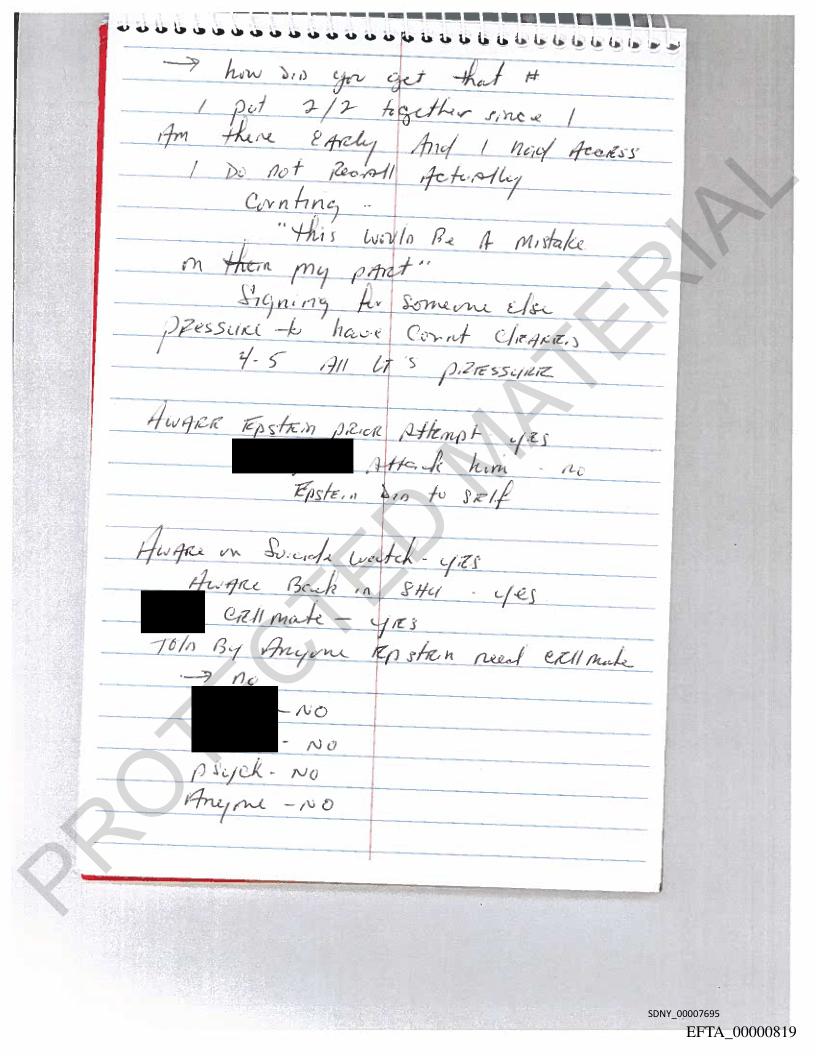 → how Did you get that #
I put 2/2 together since I
Am there EArly And I had Access
I Do not Recall Actually
Counting ..
"this would Be A mistake
on their my pArt"
Signing for someone else
pressure to have Count CleAred
4-5 All LT's pressure
AwAre Epstein prior Attempt yes
Attack him - no
Epstein Did to self
AwAre on Suicide watch - yes
AwAre Back in SHU - yes
cellmate - yes
Told By Anyone Epstein need cellmate
→ no
- NO
- NO
psych - NO
Anyone - NO
PROTECTED MATERIAL
SDNY_00007695
EFTA_00000819